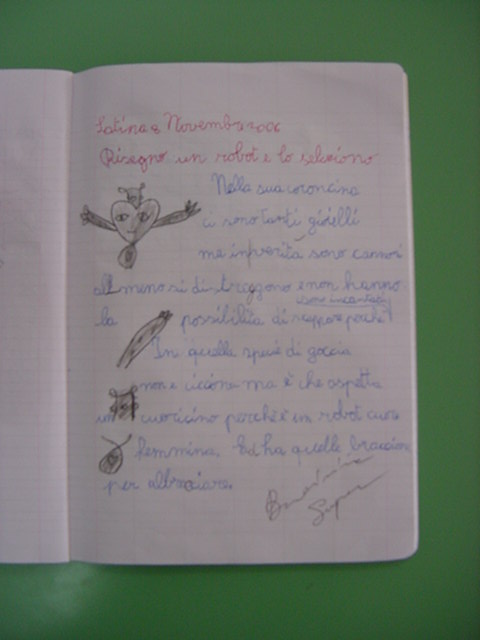 Latina 2 Novembre 2006
Disegno un robot e lo seleziono
Nella sua coroncina
ci sono tanti gioielli
ma in verità sono cannoni
almeno si distraggono e non hanno
sono incantati
la possibilità di scappare perché
In quella specie di goccia
non è ciccione ma è che aspetta
un cuoricino perché è un robot cuore
femmina. Ed ha quelle braccione
per abbracciare.
Super